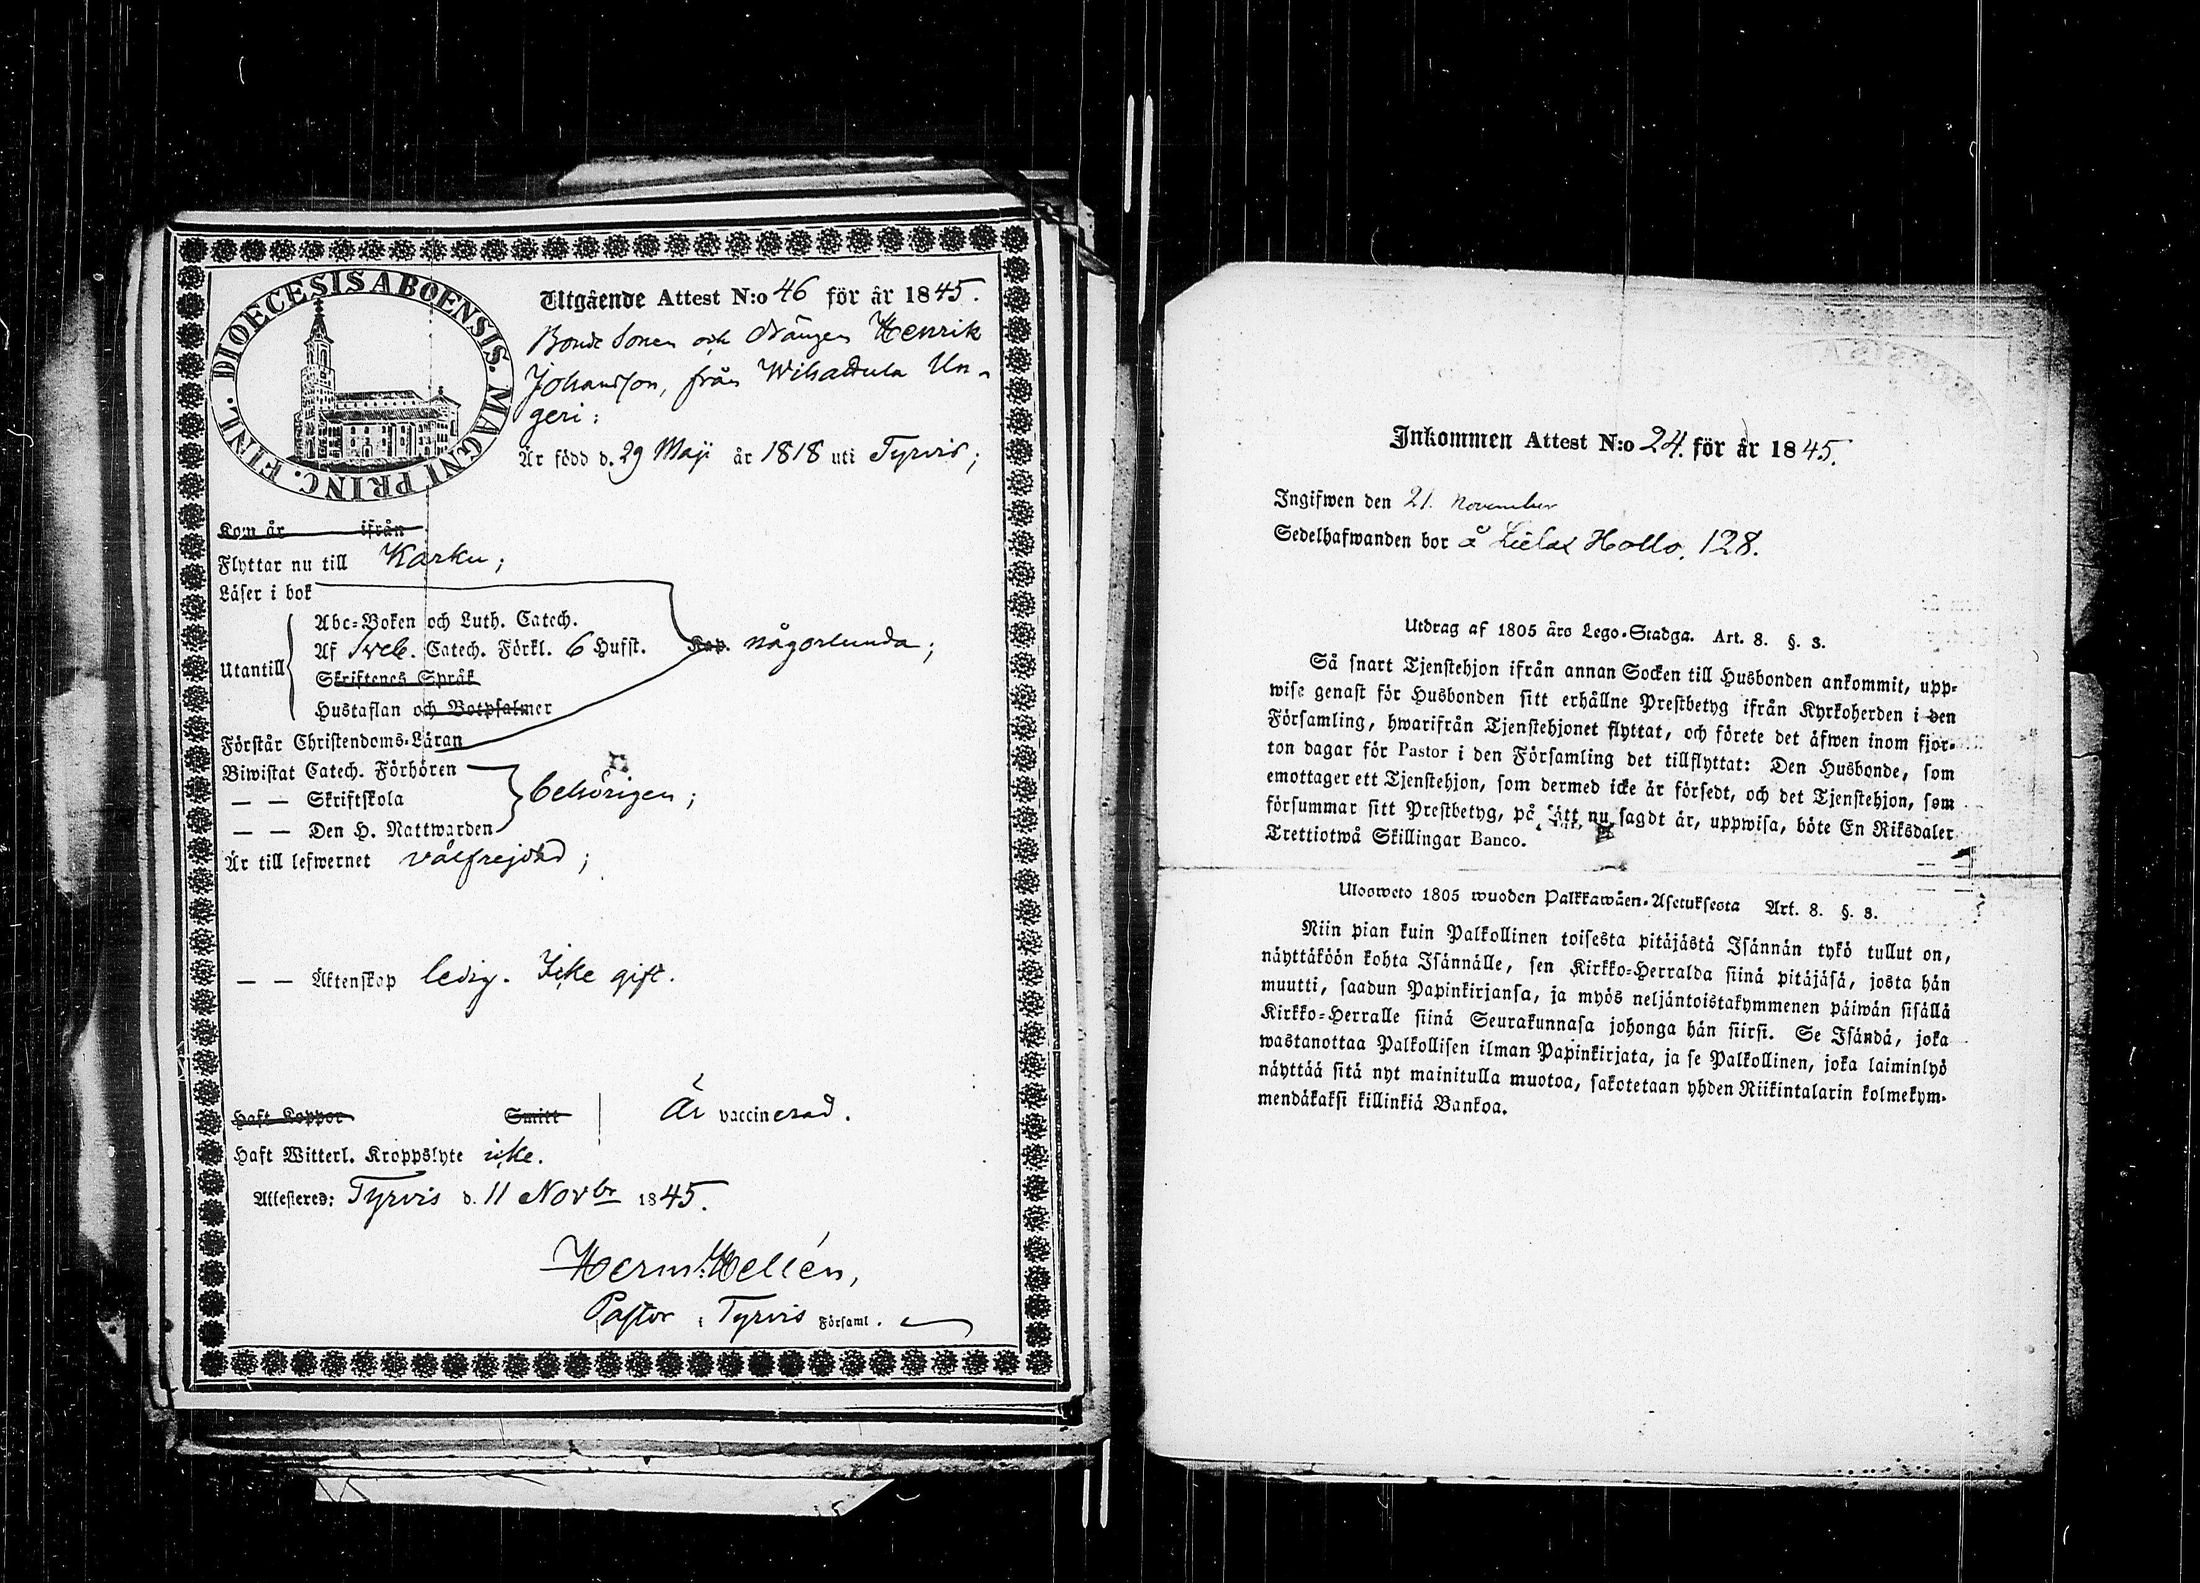 DIOECESIS ABOENSIS. MAGNI PRINC. FINL.
Utgående Attest N:o 46 för år 1845.
Bonde Sonen och drängen Henrik
Johansson, från Wihattula Un-
geri:
Är född d. 29 Maji år 1818 uti Tyrvis;
Kom år ifrån
Flyttar nu till Karku;
Läser i bok
Abc-Boken och Luth. Catech.
Af Sveb. Catech. Förkl. 6 Hufst. Kap. någorlunda;
Utantill
Skriftenes Språk
Hustaflan och Botpsalmer
Förstår Christendoms-Läran
Biwistat Catech. Förhören
— — Skriftskola behörigen;
— — Den H. Nattwarden
Är till lefwernet välfrejdad;
— — Äktenskap ledig. Icke gift.
Haft Koppor Smitt Är vaccinerad.
Haft Witterl. Kroppslyte icke.
Attesteres: Tyrvis d. 11 Novbr 1845.
Herm. Hellén,
Pastor i Tyrvis Församl.
Inkommen Attest N:o 24. för år 1845.
Ingifwen den 21. November
Sedelhafwanden bor å Hollo. 128.
Utdrag af 1805 års Lego-Stadga. Art. 8. §. 3.
Så snart Tjenstehjon ifrån annan Socken till Husbonden ankommit, upp-
wise genast för Husbonden sitt erhållne Prestbetyg ifrån Kyrkoherden i den
Församling, hwarifrån Tjenstehjonet flyttat, och förete det äfwen inom fjor-
ton dagar för Pastor i den Församling det tillflyttat: Den Husbonde, som
emottager ett Tjenstehjon, som dermed icke är försedt, och det Tjenstehjon, som
försummar sitt Prestbetyg, på sätt nu sagdt är, uppwisa, böte En Riksdaler
Trettiotwå Skillingar Banco.
Ulosweto 1805 wuoden Palkkawäen-Asetuksesta Art. 8. §. 3.
Niin pian kuin Palkollinen toisesta pitäjästä Isännän tykö tullut on,
näyttäköön kohta Isännälle, sen Kirkko-Herralda siinä pitäjäsä, josta hän
muutti, saadun Papinkirjansa, ja myös neljäntoistakymmenen päiwän sisällä
Kirkko-Herralle siinä Seurakunnasa johonga hän siirsi. Se Isändä, joka
wastanottaa Palkollisen ilman Papinkirjata, ja se Palkollinen, joka laiminlyö
näyttää sitä nyt mainitulla muotoa, sakotetaan yhden Riikintalarin kolmekym-
mendäkaksi killinkiä Bankoa.